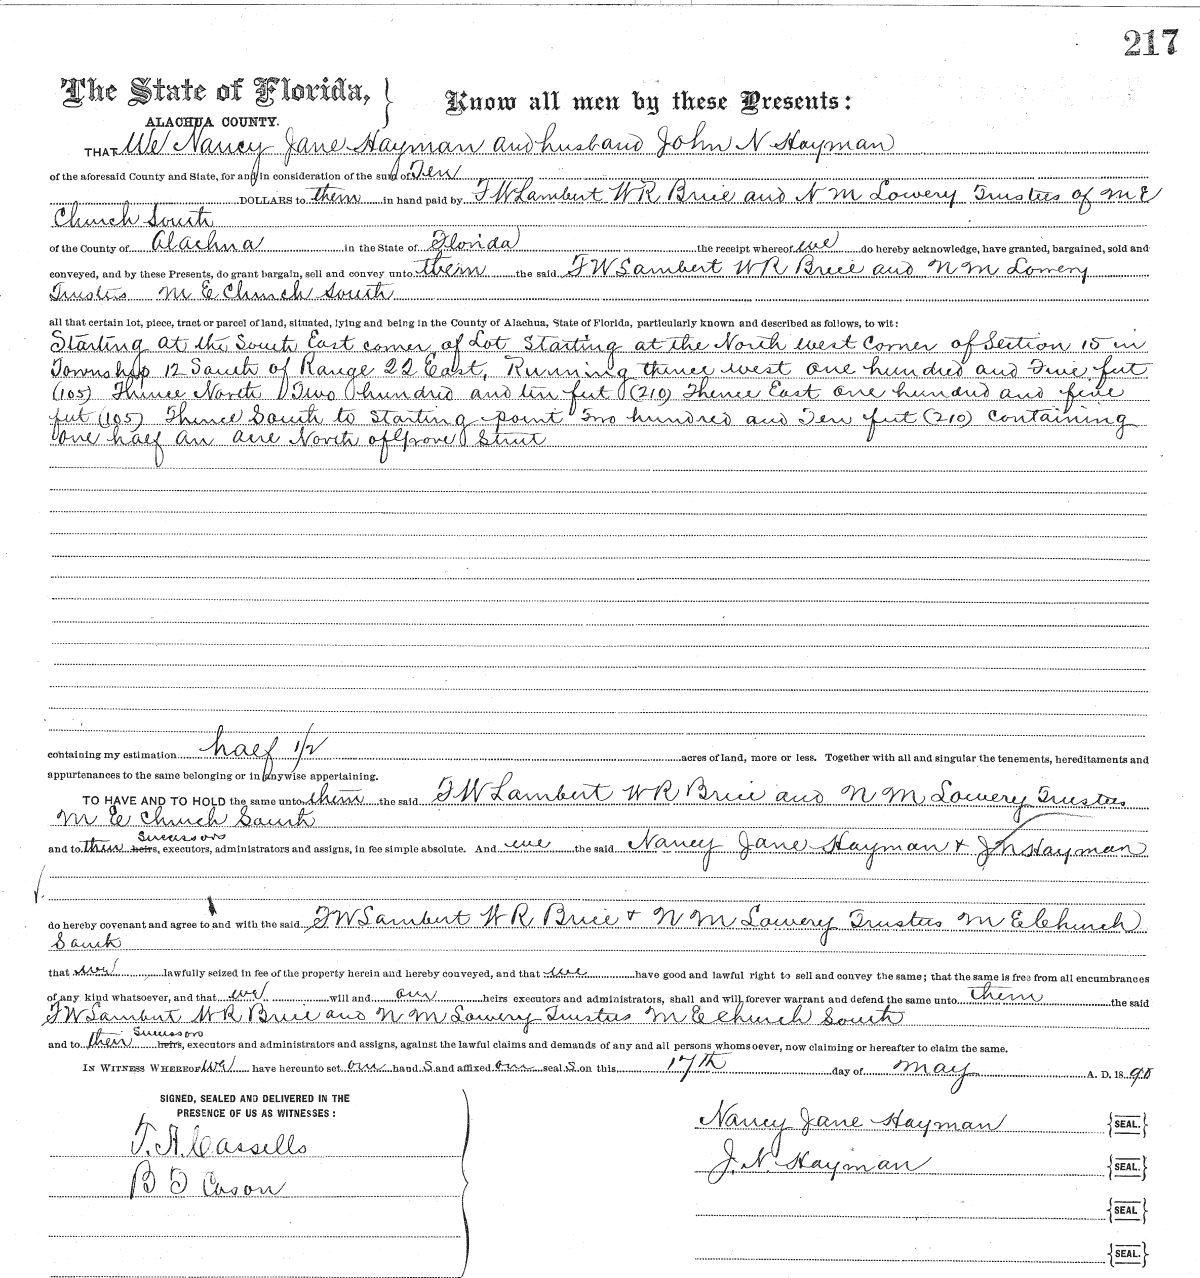 217
The State of Florida, } Know all men by these Presents:
ALACHUA COUNTY.
THAT We Nancy Jane Hayman and husband John N Hayman
of the aforesaid County and State, for and in consideration of the sum of Ten
DOLLARS to them in hand paid by F W Lambert W R Brice and N M Lowery Trustees of M E
Church South
of the County of Alachua in the State of Florida the receipt whereof we do hereby acknowledge, have granted, bargained, sold and
conveyed, and by these Presents, do grant bargain, sell and convey unto them the said F W Lambert W R Brice and N M Lowery
Trustees M E Church South
all that certain lot, piece, tract or parcel of land, situated, lying and being in the County of Alachua, State of Florida, particularly known and described as follows, to wit:
Starting at the South East corner of Lot Starting at the North west Corner of Section 15 in
Township 12 South of Range 22 East, Running thence west one hundred and Five feet
(105) Thence North Two hundred and ten feet (210) Thence East one hundred and five
feet (105) Thence South to Starting point Two hundred and Ten feet (210) Containing
one half an acre North of Grove Street
containing my estimation half 1/2 acres of land, more or less. Together with all and singular the tenements, hereditaments and
appurtenances to the same belonging or in anywise appertaining.
TO HAVE AND TO HOLD the same unto them the said F W Lambert W R Brice and N M Lowery Trustees
M E Church South
Sucessors
and to their heirs, executors, administrators and assigns, in fee simple absolute. And we the said Nancy Jane Hayman & J N Hayman
do hereby covenant and agree to and with the said F W Lambert W R Brice & N M Lowery Trustees M E Church
South
that we lawfully seized in fee of the property herein and hereby conveyed, and that we have good and lawful right to sell and convey the same; that the same is free from all encumbrances
of any kind whatsoever, and that we will and our heirs executors and administrators, shall and will forever warrant and defend the same unto them the said
F W Lambert W R Brice and N M Lowery Trustees M E Church South
Sucessors
and to their heirs, executors and administrators and assigns, against the lawful claims and demands of any and all persons whomsoever, now claiming or hereafter to claim the same.
IN WITNESS WHEREOF we have hereunto set our hand s and affixed our seal s on this 17th day of May A. D. 18 98
SIGNED, SEALED AND DELIVERED IN THE
PRESENCE OF US AS WITNESSES:
T. A. Cassells
B D Cason
Nancy Jane Hayman {SEAL.}
J. N. Hayman {SEAL.}
{SEAL}
{SEAL.}